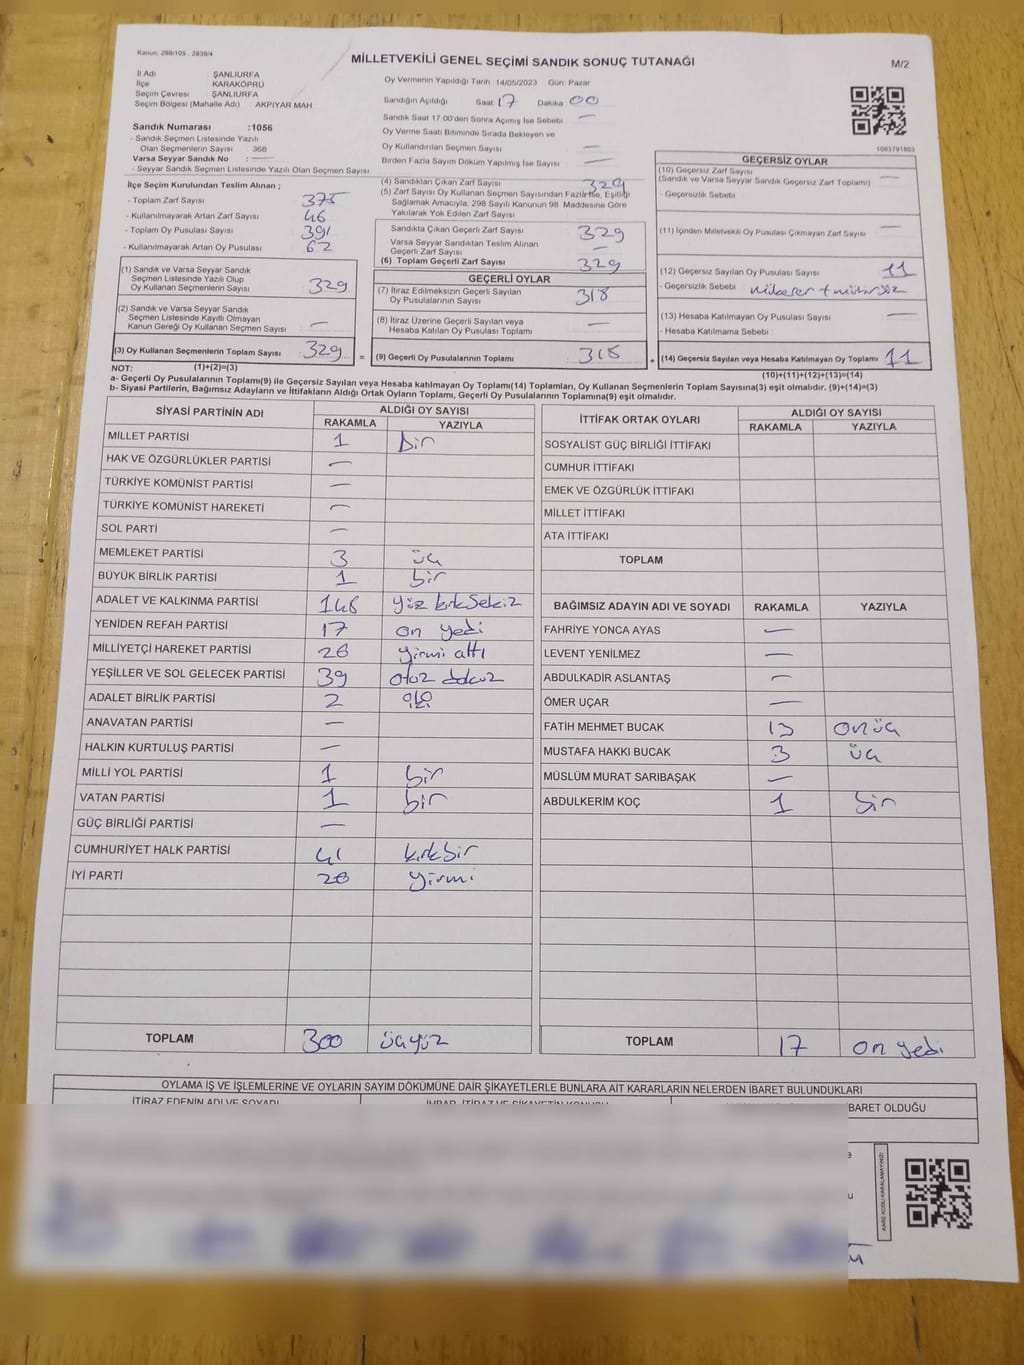 Kanun, 298/105 , 2839/4
MİLLETVEKİLİ GENEL SEÇİMİ SANDIK SONUÇ TUTANAĞI
M/2
İl Adı ŞANLIURFA
İlçe KARAKÖPRÜ
Seçim Çevresi ŞANLIURFA
Seçim Bölgesi (Mahalle Adı) AKPIYAR MAH
Sandık Numarası :1056
- Sandık Seçmen Listesinde Yazılı
Olan Seçmenlerin Sayısı 368
Varsa Seyyar Sandık No : —
- Seyyar Sandık Seçmen Listesinde Yazılı Olan Seçmen Sayısı
Oy Vermenin Yapıldığı Tarih :14/05/2023 Gün: Pazar
Sandığın Açıldığı Saat 17 Dakika 00
Sandık Saat 17.00'den Sonra Açımış İse Sebebi —
Oy Verme Saati Bitiminde Sırada Bekleyen ve
Oy Kullandırılan Seçmen Sayısı —
Birden Fazla Sayım Döküm Yapılmış İse Sayısı —
1083791603
İlçe Seçim Kurulundan Teslim Alınan ;
- Toplam Zarf Sayısı 375
- Kullanılmayarak Artan Zarf Sayısı 46
- Toplam Oy Pusulası Sayısı 391
- Kullanılmayarak Artan Oy Pusulası 62
(1) Sandık ve Varsa Seyyar Sandık
Seçmen Listesinde Yazılı Olup
Oy Kullanan Seçmenlerin Sayısı 329
(2) Sandık ve Varsa Seyyar Sandık
Seçmen Listesinde Kayıtlı Olmayan
Kanun Gereği Oy Kullanan Seçmen Sayısı —
(3) Oy Kullanan Seçmenlerin Toplam Sayısı 329 =
(4) Sandıktan Çıkan Zarf Sayısı 329
(5) Zarf Sayısı Oy Kullanan Seçmen Sayısından Fazla İse, Eşitliği
Sağlamak Amacıyla, 298 Sayılı Kanunun 98. Maddesine Göre
Yakılarak Yok Edilen Zarf Sayısı
Sandıkta Çıkan Geçerli Zarf Sayısı 329
Varsa Seyyar Sandıktan Teslim Alınan
Geçerli Zarf Sayısı —
(6) Toplam Geçerli Zarf Sayısı 329
GEÇERLİ OYLAR
(7) İtiraz Edilmeksizin Geçerli Sayılan
Oy Pusulalarının Sayısı 318
(8) İtiraz Üzerine Geçerli Sayılan veya
Hesaba Katılan Oy Pusulası Toplamı —
(9) Geçerli Oy Pusulalarının Toplamı 318 +
GEÇERSİZ OYLAR
(10) Geçersiz Zarf Sayısı
(Sandık ve Varsa Seyyar Sandık Geçersiz Zarf Toplamı) —
- Geçersizlik Sebebi
(11) İçinden Milletvekili Oy Pusulası Çıkmayan Zarf Sayısı —
(12) Geçersiz Sayılan Oy Pusulası Sayısı 11
- Geçersizlik Sebebi
(13) Hesaba Katılmayan Oy Pusulası Sayısı —
- Hesaba Katılmama Sebebi
(14) Geçersiz Sayılan veya Hesaba Katılmayan Oy Toplamı 11
NOT: (1)+(2)=(3)
(10)+(11)+(12)+(13)=(14)
a- Geçerli Oy Pusulalarının Toplamı(9) ile Geçersiz Sayılan veya Hesaba katılmayan Oy Toplamı(14) Toplamları, Oy Kullanan Seçmenlerin Toplam Sayısına(3) eşit olmalıdır. (9)+(14)=(3)
b- Siyasi Partilerin, Bağımsız Adayların ve İttifakların Aldığı Ortak Oyların Toplamı, Geçerli Oy Pusulalarının Toplamına(9) eşit olmalıdır.
SİYASİ PARTİNİN ADI ALDIĞI OY SAYISI
RAKAMLA YAZIYLA
MİLLET PARTİSİ 1 bir
HAK VE ÖZGÜRLÜKLER PARTİSİ —
TÜRKİYE KOMÜNİST PARTİSİ —
TÜRKİYE KOMÜNİST HAREKETİ —
SOL PARTİ —
MEMLEKET PARTİSİ 3 üç
BÜYÜK BİRLİK PARTİSİ 1 bir
ADALET VE KALKINMA PARTİSİ 148 yüz kırksekiz
YENİDEN REFAH PARTİSİ 17 on yedi
MİLLİYETÇİ HAREKET PARTİSİ 26 yirmi altı
YEŞİLLER VE SOL GELECEK PARTİSİ 39 otuz dokuz
ADALET BİRLİK PARTİSİ 2 iki
ANAVATAN PARTİSİ —
HALKIN KURTULUŞ PARTİSİ —
MİLLİ YOL PARTİSİ 1 bir
VATAN PARTİSİ 1 bir
GÜÇ BİRLİĞİ PARTİSİ —
CUMHURİYET HALK PARTİSİ 41 kırkbir
İYİ PARTİ 20 yirmi
TOPLAM 300 üçyüz
İTTİFAK ORTAK OYLARI ALDIĞI OY SAYISI
RAKAMLA YAZIYLA
SOSYALİST GÜÇ BİRLİĞİ İTTİFAKI
CUMHUR İTTİFAKI
EMEK VE ÖZGÜRLÜK İTTİFAKI
MİLLET İTTİFAKI
ATA İTTİFAKI
TOPLAM
BAĞIMSIZ ADAYIN ADI VE SOYADI RAKAMLA YAZIYLA
FAHRİYE YONCA AYAS —
LEVENT YENİLMEZ —
ABDULKADİR ASLANTAŞ —
ÖMER UÇAR —
FATİH MEHMET BUCAK 13 onüç
MUSTAFA HAKKI BUCAK 3 üç
MÜSLÜM MURAT SARIBAŞAK —
ABDULKERİM KOÇ 1 bir
TOPLAM 17 on yedi
OYLAMA İŞ VE İŞLEMLERİNE VE OYLARIN SAYIM DÖKÜMÜNE DAİR ŞİKAYETLERLE BUNLARA AİT KARARLARIN NELERDEN İBARET BULUNDUKLARI
İTİRAZ EDENİN ADI VE SOYADI
İBARET OLDUĞU
KARE KODU KARALAMAYINIZ!